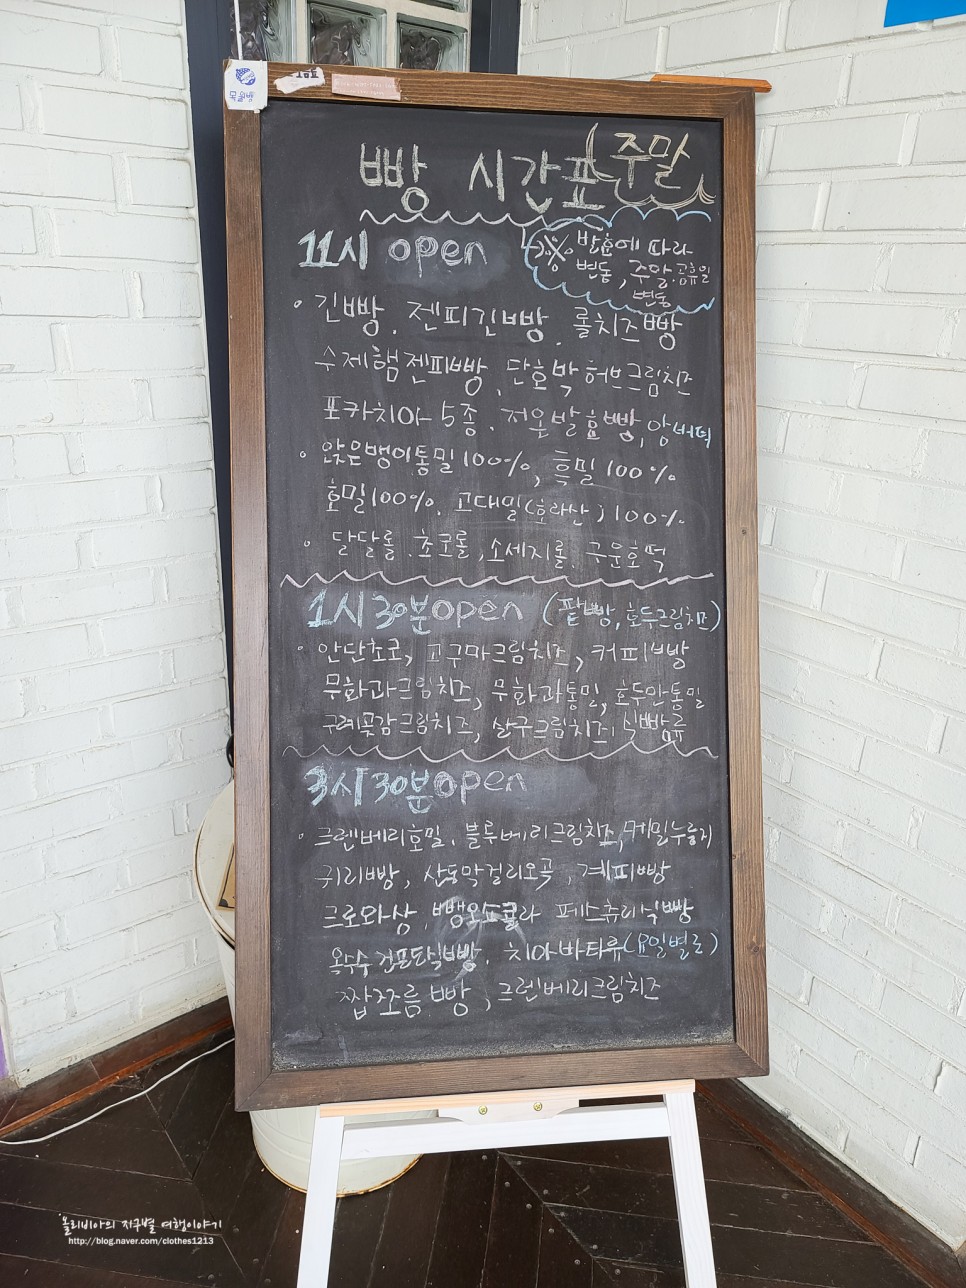 목월빵
빵 시간표 주말
11시 open
※ 발효에 따라
변동, 주말.공휴일
변동
• 긴빵. 젠피긴빵. 롤치즈빵
수제햄젠피빵, 단호박허브크림치즈
포카치아 5종. 저온발효빵, 앙버터
• 앉은뱅이통밀100%, 흑밀100%
호밀100%. 고대밀(호라산)100%
• 달달롤. 초코롤, 소세지롤. 구운호떡
1시30분open (팥빵, 호두크림치즈)
• 안단초코, 고구마크림치즈, 커피빵
무화과크림치즈, 무화과통밀, 호두만통밀
구례곶감크림치즈, 살구크림치즈, 식빵류
3시30분open
• 크렌베리호밀. 블루베리크림치즈, 누룽지
귀리빵, 산동막걸리오곡, 계피빵
크로와상, 뺑오쇼콜라 페스츄리식빵
옥수수식빵. 치아바타류(요일별로)
짭쪼름 빵, 크렌베리크림치즈
올리비아의 지구별 여행이야기
http://blog.naver.com/clothes1213